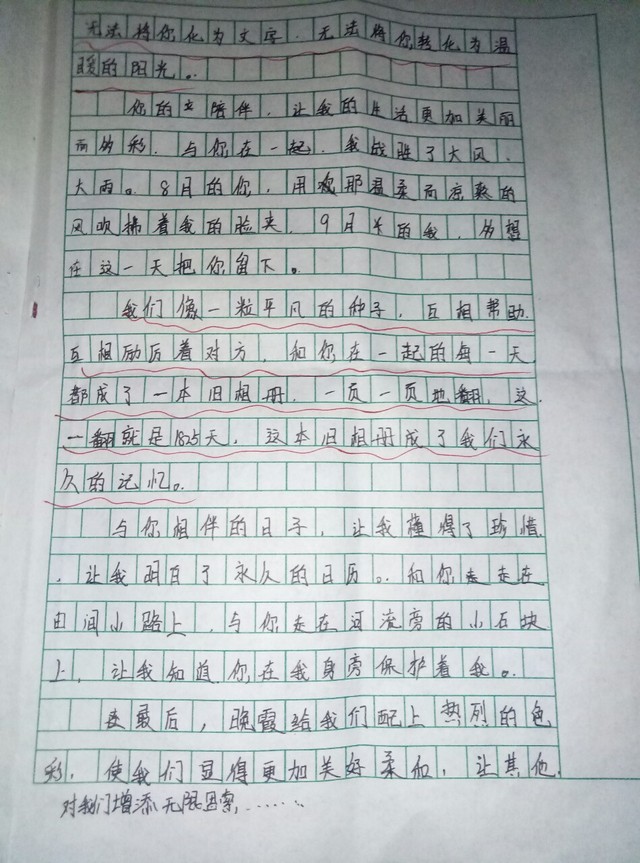 无法将你化为文字，无法将你转化为温
暖的阳光。
你的陪伴，让我的生活更加美丽
而多彩，与你在一起，我战胜了大风，
大雨。8月的你，用那温柔而寂熟的
风吹拂着我的脸夹，9月半的我，多想
在这一天把你留下。
我们像一粒平凡的种子，互相帮助
互相励厉着对方，和你在一起的每一天
都成了一本旧相册，一页一页地翻，这
一翻就是1825天，这本旧相册成了我们永
久的记忆。
与你相伴的日子，让我懂得了珍惜
，让我明白了永久的日历。和你走走在
田间小路上，与你走在河流旁的小石块
上，让我知道你在我身旁保护着我。
最后，晚霞给我们配上热烈的色
彩，使我们显得更加美好柔和，让其他
对我们增添无限思索，……